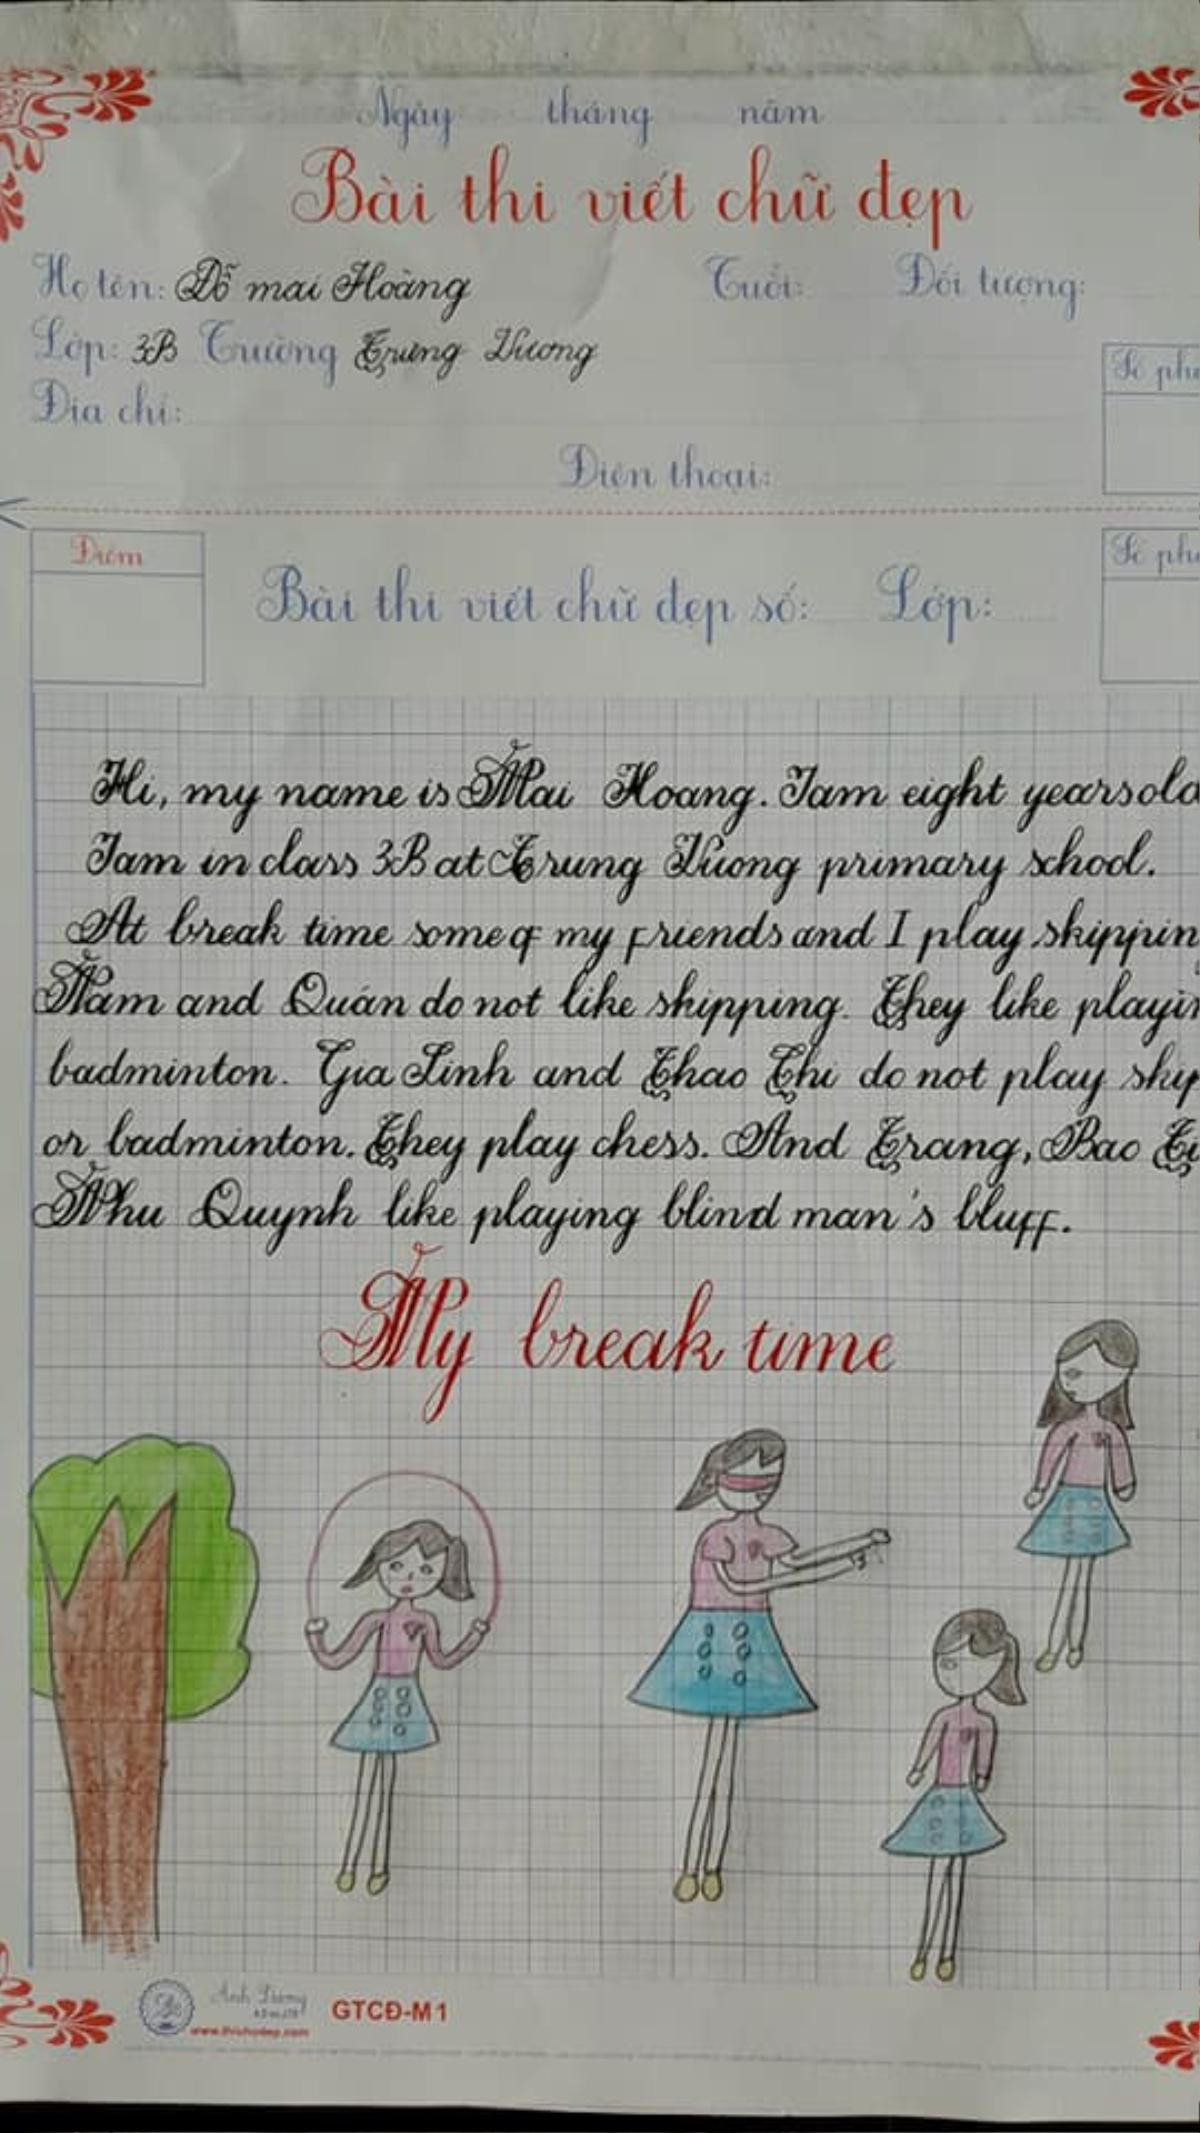 Ngày tháng năm
Bài thi viết chữ đẹp
Họ tên: Đỗ mai Hoàng Tuổi: Đối tượng:
Lớp: 3B Trường Trưng Vương
Địa chỉ:
Số phá
Điện thoại:
Điểm
Bài thi viết chữ đẹp số: Lớp:
Số phá
Hi, my name is Mai Hoang. I am eight years old
I am in class 3B at Trung Vuong primary school.
At break time some of my friends and I play skippin
Nam and Quán do not like skipping. They like playin
badminton. Gia Linh and Thao Chi do not play skip
or badminton. They play chess. And Trang, Bao
Nhu Quynh like playing blind man's bluff.
My break time
Ánh Dương
www.thichudep.com
GTCĐ-M1